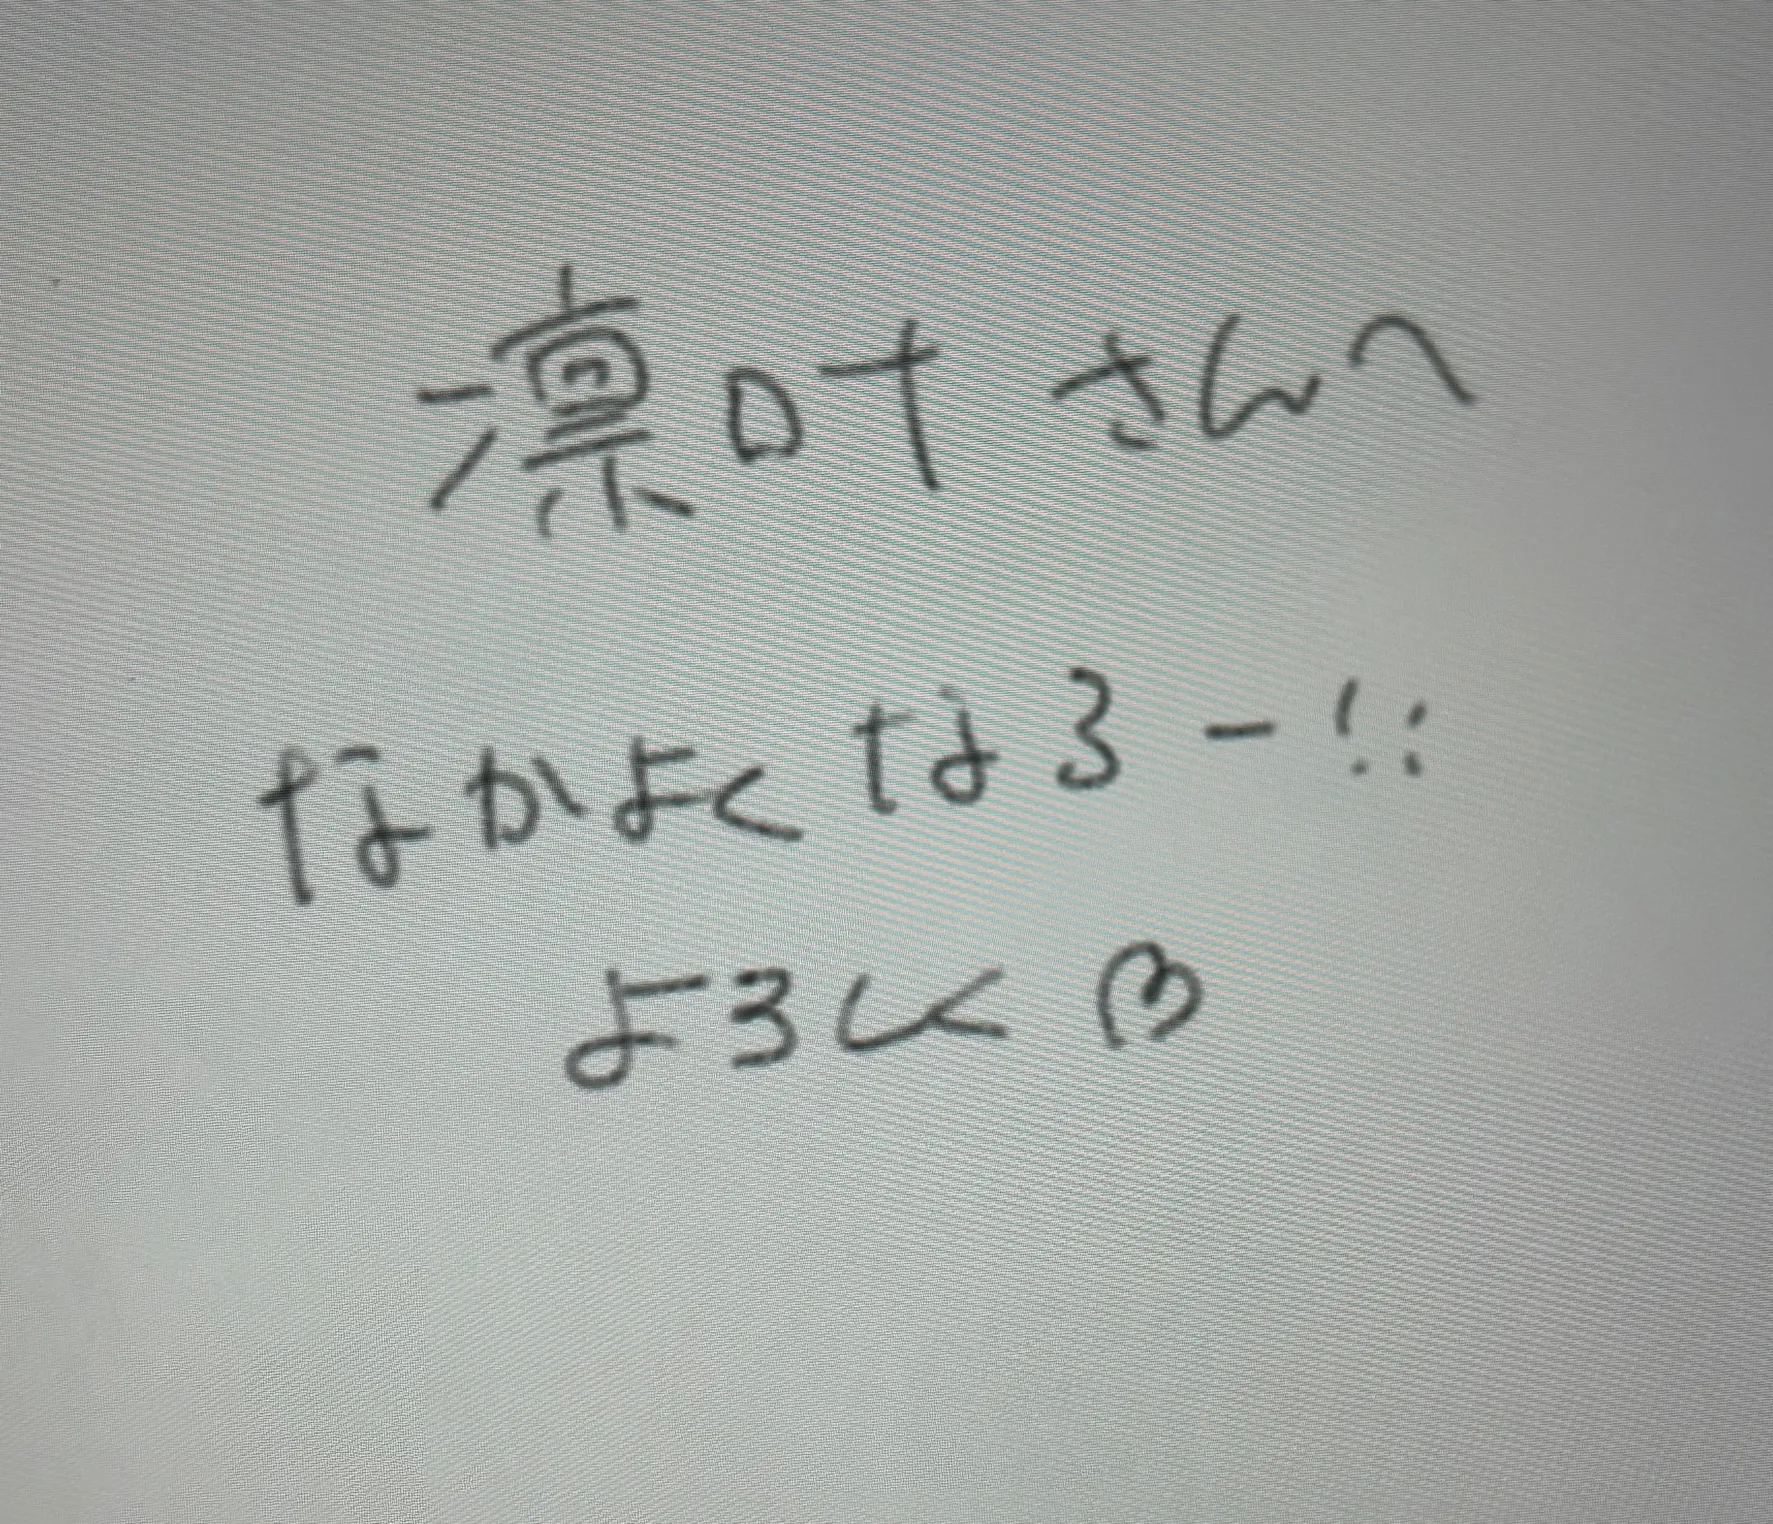 凛叶さんへ
なかよくなろー!!
よろしく♡